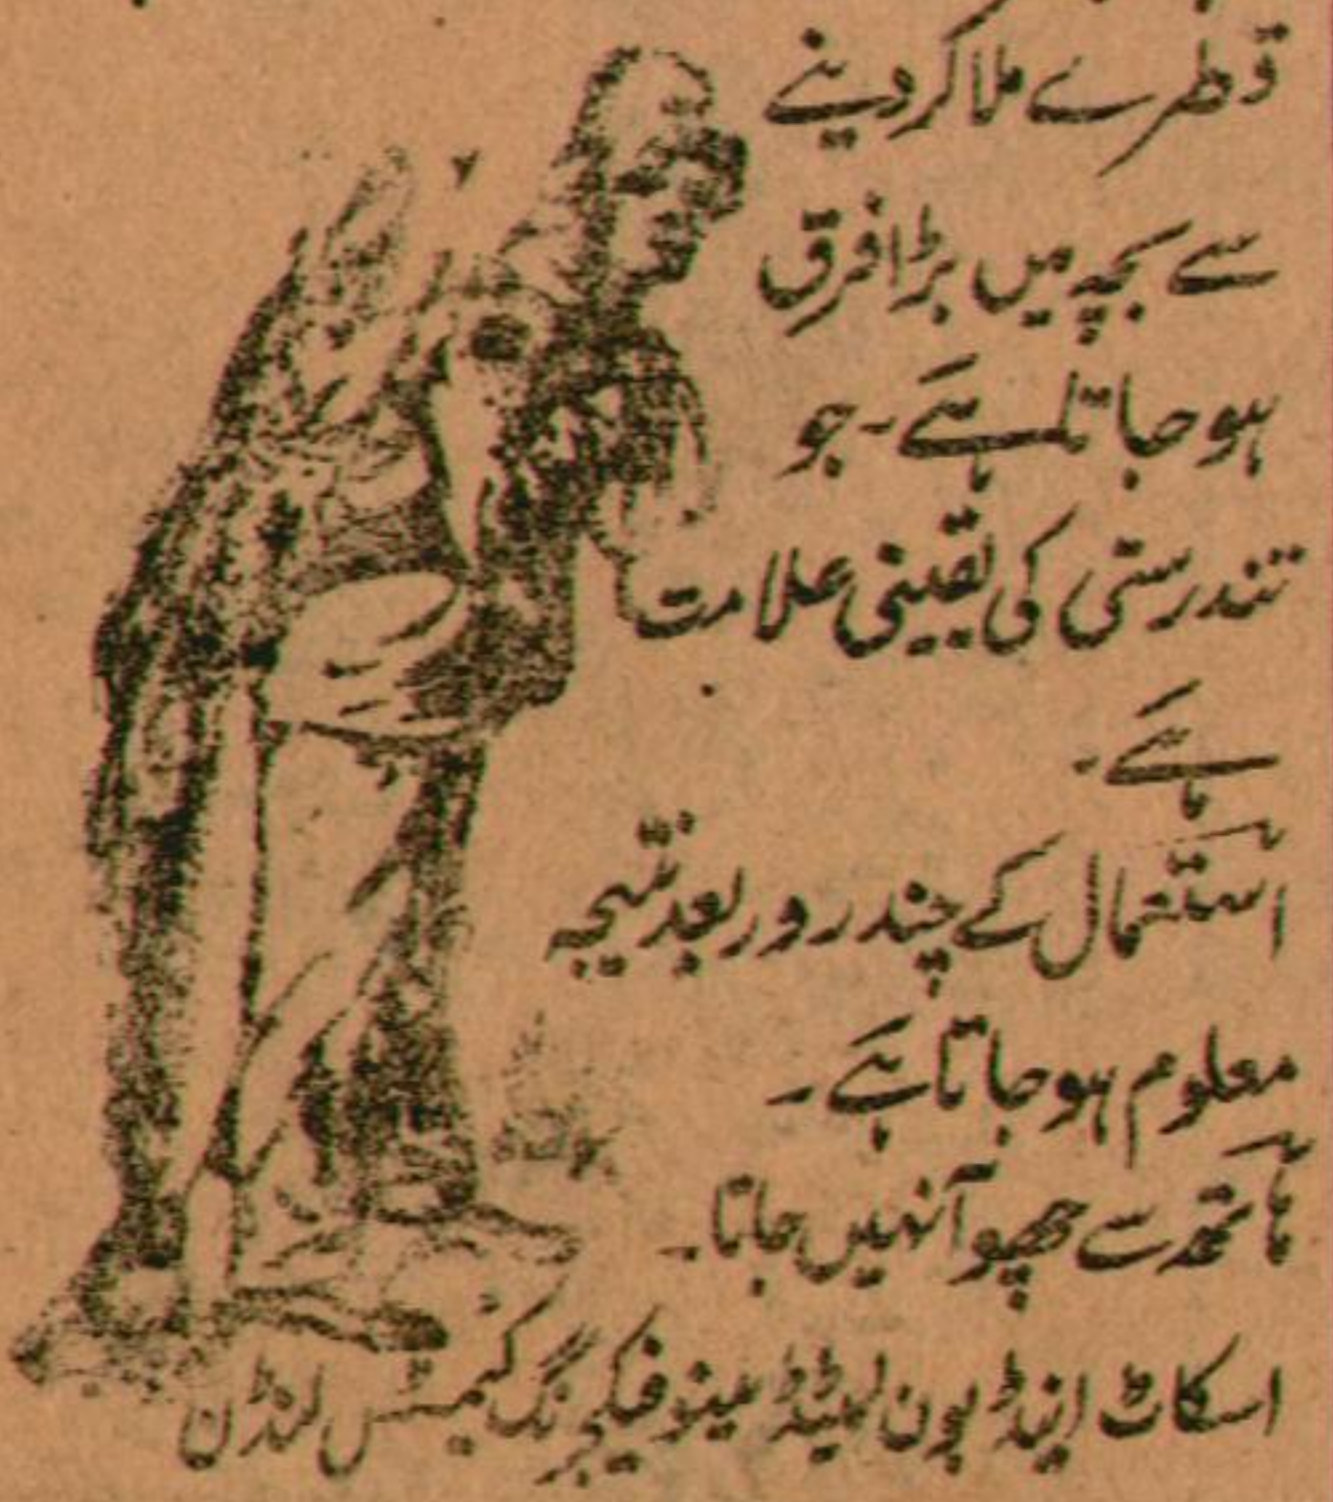 قطرے ملا کر دینے
سے بچہ میں بڑا فرق
ہو جاتا ہے۔ جو
تندرستی کی یقینی علامت
ہے۔
استعمال کے چند روز بعد نتیجہ
معلوم ہو جاتا ہے۔
ہاتھ سے چھوآ نہیں جاتا۔
اسکاٹ اینڈ بون لمیٹڈ مینوفیکچرنگ کیمسٹس لنڈن